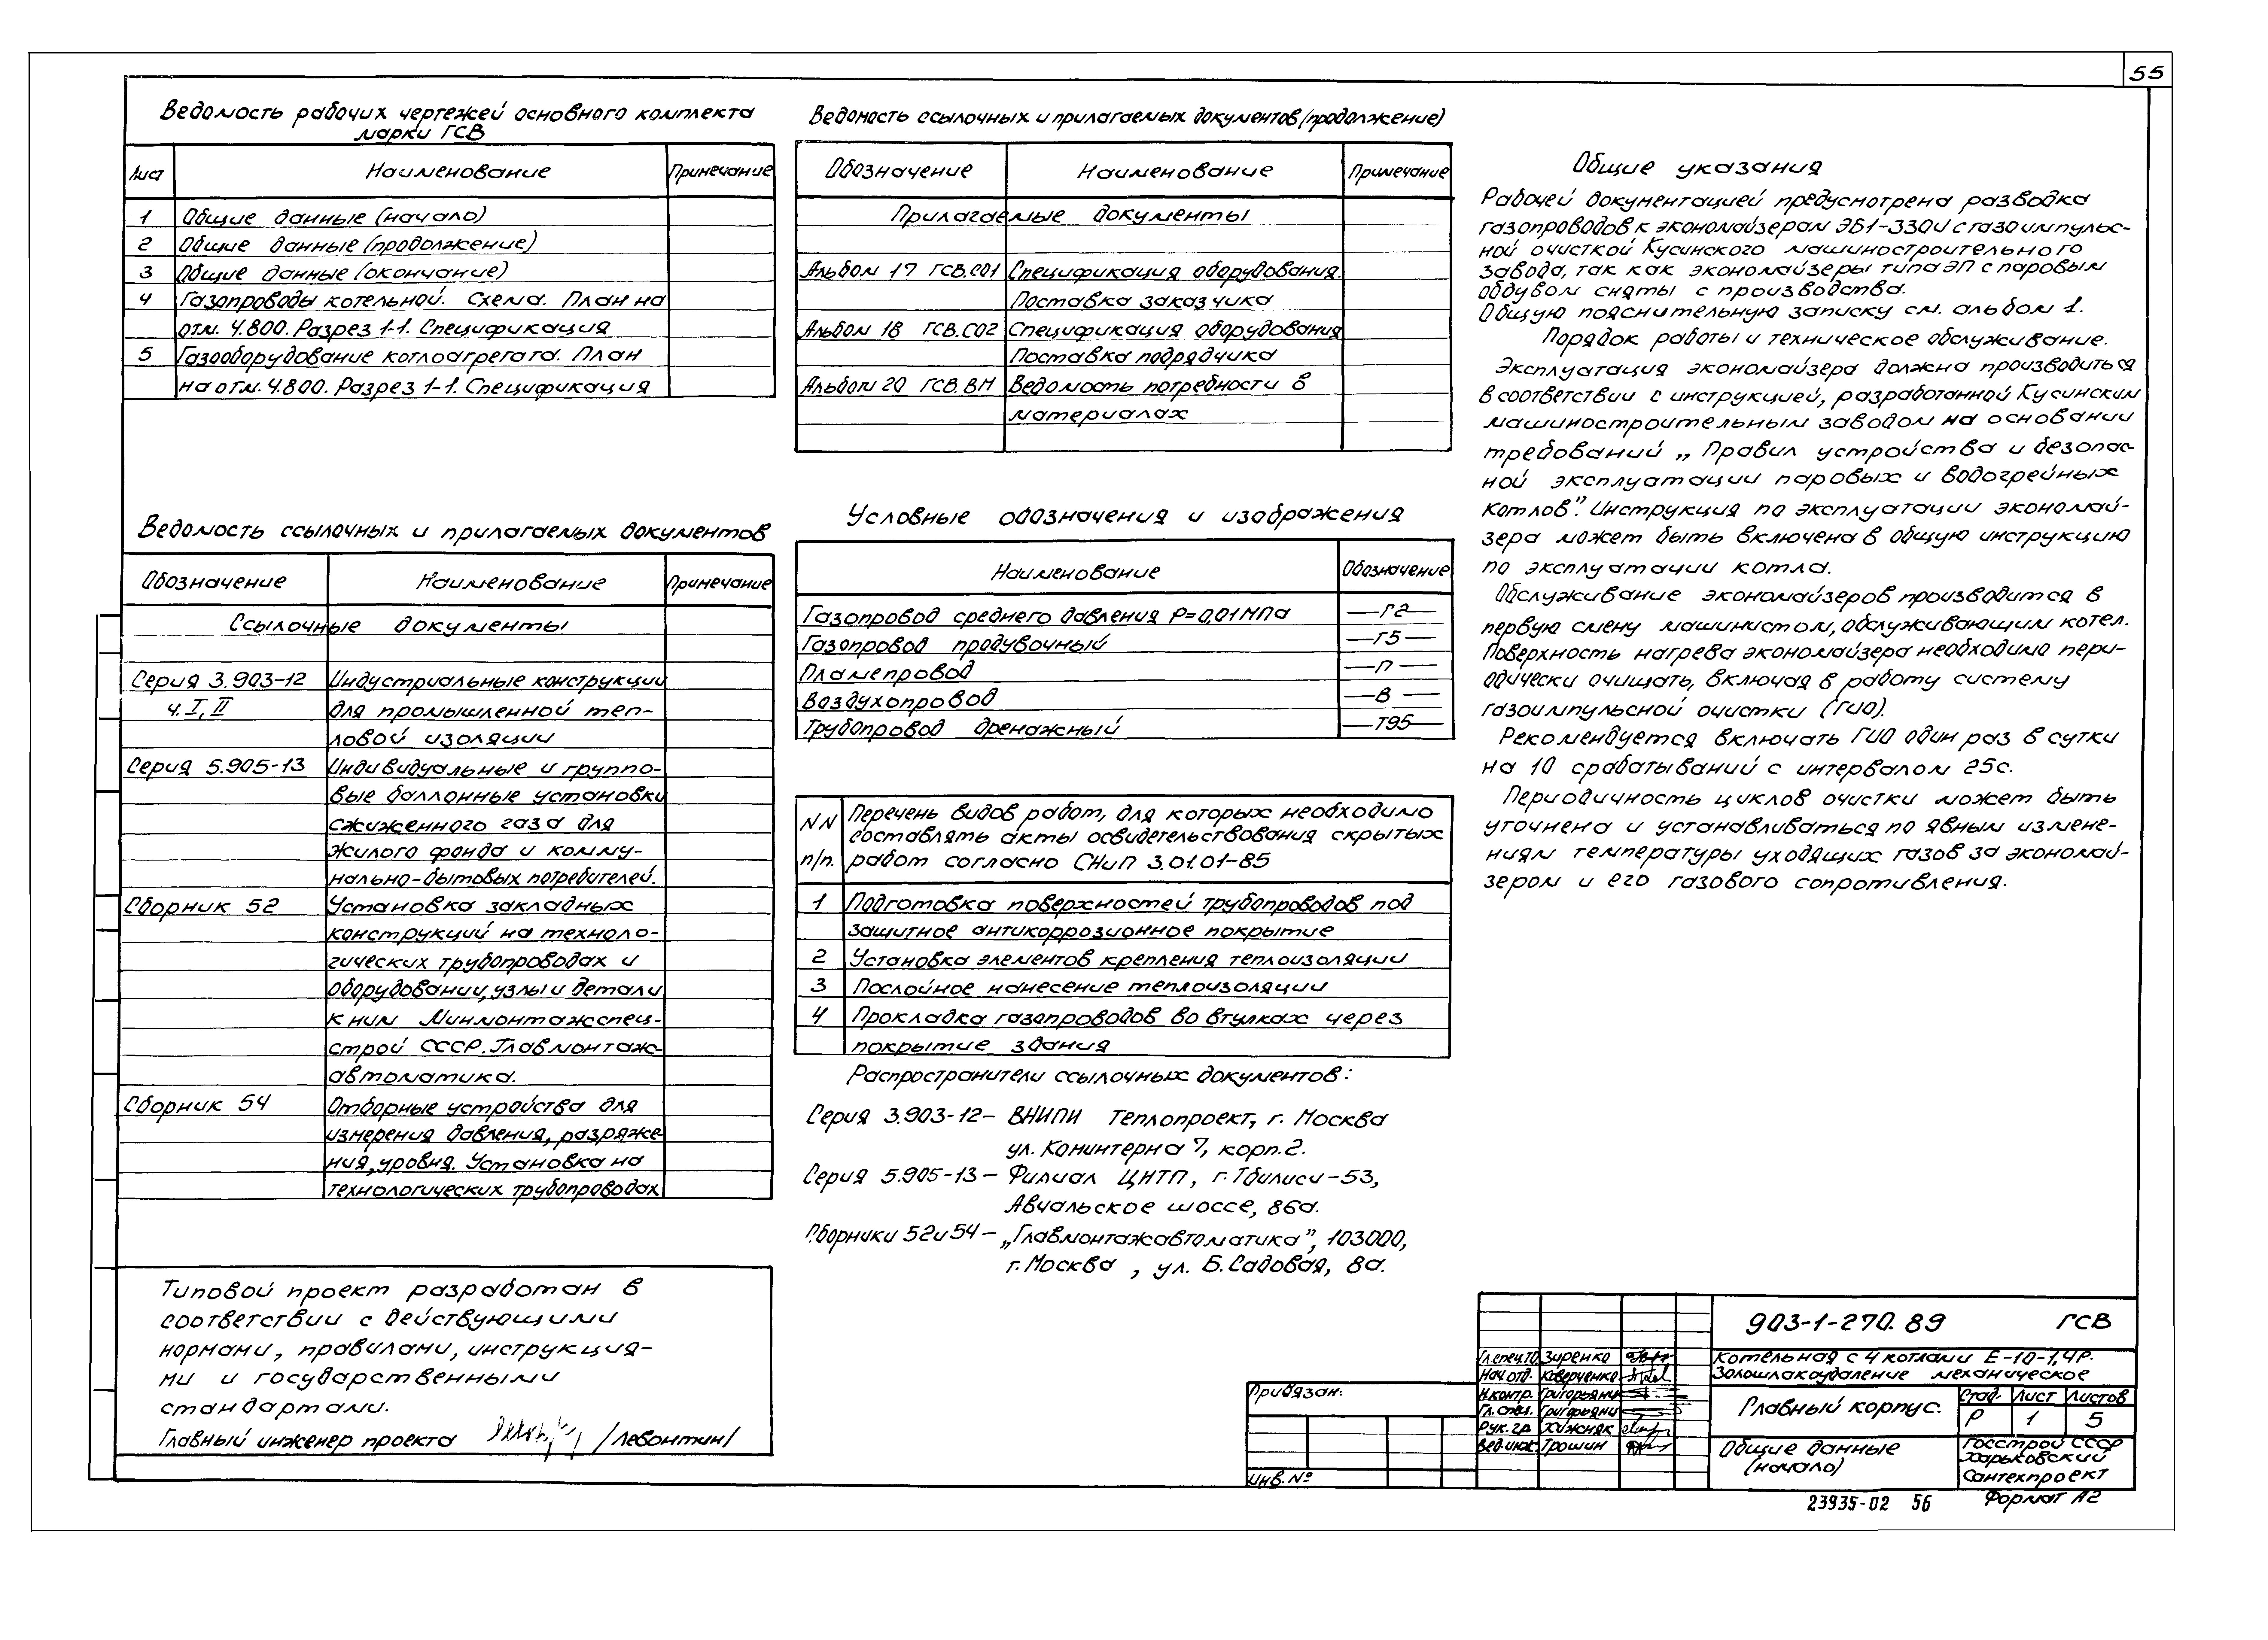 55
Ведомость рабочих чертежей основного комплекта
марки ГСВ
Лист Наименование Примечание
1 Общие данные (начало)
2 Общие данные (продолжение)
3 Общие данные (окончание)
4 Газопроводы котельной. Схема. План на
отм. 4.800. Разрез 1-1. Спецификация
5 Газооборудование котлоагрегата. План
на отм. 4.800. Разрез 1-1. Спецификация
Ведомость ссылочных и прилагаемых документов
Обозначение Наименование Примечание
Ссылочные документы
Серия 3.903-12 Индустриальные конструкции
ч. I, II для промышленной теп-
ловой изоляции
Серия 5.905-13 Индивидуальные и группо-
вые баллонные установки
сжиженного газа для
жилого фонда и комму-
нально-бытовых потребителей.
Сборник 52 Установка закладных
конструкций на техноло-
гических трубопроводах и
оборудовании, узлы и детали
к ним Минмонтажспец-
строй СССР. Главмонтаж-
автоматика.
Сборник 54 Отборные устройства для
измерения давления, разряже-
ния, уровня. Установка на
технологических трубопроводах
Типовой проект разработан в
соответствии с действующими
нормами, правилами, инструкция-
ми и государственными
стандартами.
Главный инженер проекта /Левонтин/
Ведомость ссылочных и прилагаемых документов (продолжение)
Обозначение Наименование Примечание
Прилагаемые документы
Альбом 17 ГСВ.СО1 Спецификация оборудования.
Поставка заказчика
Альбом 18 ГСВ.СО2 Спецификация оборудования
Поставка подрядчика
Альбом 20 ГСВ.ВМ Ведомость потребности в
материалах
Условные обозначения и изображения
Наименование Обозначение
Газопровод среднего давления Р=0,01МПа —Г2—
Газопровод продувочный —Г5—
Пламепровод —П—
Воздухопровод —В—
Трубопровод дренажный —Т95—
NN Перечень видов работ, для которых необходимо
составлять акты освидетельствования скрытых
п/п. работ согласно СНиП 3.01.01-85
1 Подготовка поверхностей трубопроводов под
защитное антикоррозионное покрытие
2 Установка элементов крепления теплоизоляции
3 Послойное нанесение теплоизоляции
4 Прокладка газопроводов во втулках через
покрытие здания
Распространители ссылочных документов:
Серия 3.903-12 — ВНИПИ Теплопроект, г. Москва
ул. Коминтерна 7, корп. 2.
Серия 5.905-13 — Филиал ЦИТП, г. Тбилиси-53,
Авчальское шоссе, 86а.
Сборники 52 и 54 — „Главмонтажавтоматика”, 103000,
г. Москва, ул. Б. Садовая, 8а.
Общие указания
Рабочей документацией предусмотрена разводка
газопроводов к экономайзерам ЭБ1-330И с газоимпульс-
ной очисткой Кусинского машиностроительного
завода, так как экономайзеры типа ЭП с паровым
обдувом сняты с производства.
Общую пояснительную записку см. альбом 1.
Порядок работы и техническое обслуживание.
Эксплуатация экономайзера должна производиться
в соответствии с инструкцией, разработанной Кусинским
машиностроительным заводом на основании
требований „Правил устройства и безопас-
ной эксплуатации паровых и водогрейных
котлов”. Инструкция по эксплуатации экономай-
зера может быть включена в общую инструкцию
по эксплуатации котла.
Обслуживание экономайзеров производится в
первую смену машинистом, обслуживающим котел.
Поверхность нагрева экономайзера необходимо пери-
одически очищать, включая в работу систему
газоимпульсной очистки (ГИО).
Рекомендуется включать ГИО один раз в сутки
на 10 срабатываний с интервалом 25с.
Периодичность циклов очистки может быть
уточнена и устанавливаться по явным измене-
ниям температуры уходящих газов за экономай-
зером и его газового сопротивления.
Привязан:
Инв. №
903-1-270.89 ГСВ
Гл.спец.ТО Зиренко
Нач.отд. Коверченко
Н.контр. Григорьянц
Гл.спец. Григорьянц
Рук.гр. Хижняк
Вед.инж. Трошин
Котельная с 4 котлами Е-10-1,4Р.
Золошлакоудаление механическое
Главный корпус.
Стад. Лист Листов
Р 1 5
Общие данные
(начало)
Госстрой СССР
Харьковский
Сантехпроект
23935-02 56 Формат А2